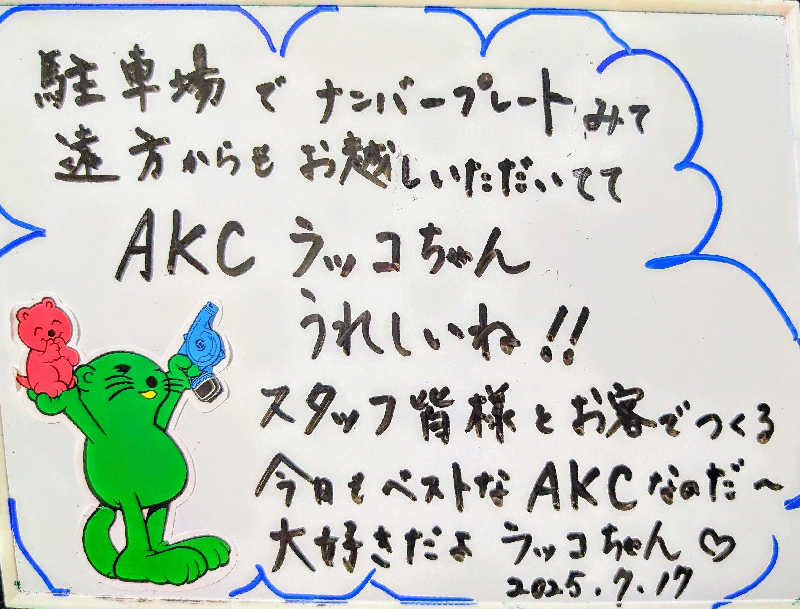 駐車場でナンバープレートみて
遠方からもお越しいただいてて
AKCラッコちゃん
うれしいね!!
スタッフ皆様とお客でつくる
今日もベストなAKCなのだ〜
大好きだよ ラッコちゃん♡
2025.7.17